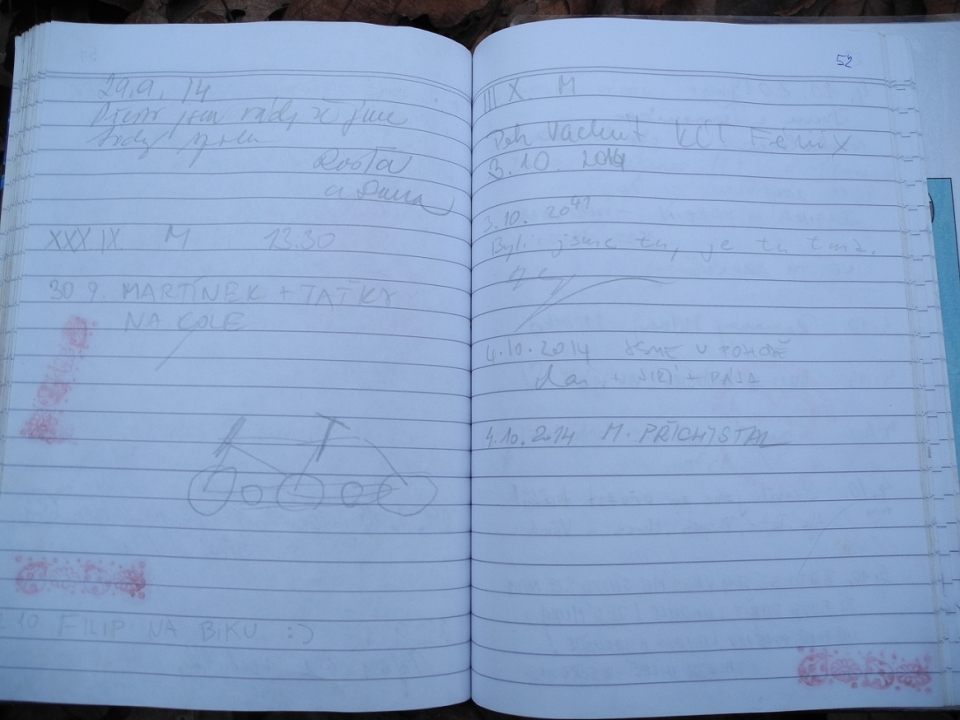 29.9. 14
jsme rádi že jsme
Rosťa
a
XXX IX M 13.30
30 9. MARTÍNEK + TAŤKA
NA KOLE
10 FILIP NA BIKU :)
52
III X M
Petr Vachut KČT Fénix
3.10. 2014
3.10. 2014
Byli jsme tu, je tu tma.
4.10.2014 JSME V POHODĚ
+ JIŘÍ +
4.10.2014 M. PŘICHYSTAL